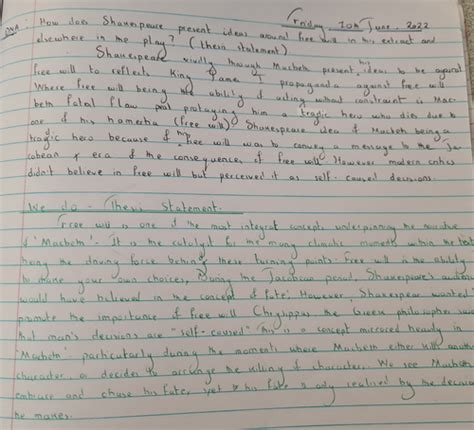 Friday 10th June, 2022
DNA: How does Shakespeare present ideas around free will in his extract and
elsewhere in the play? (thesis statement)
Shakespeare vividly though Macbeth present his ideas to be against
free will to reflects King James I propaganda against free will
Where free will being the ability of acting without constraint is Mac-
beth fatal flaw protaying him a tragic hero who dies due to
one of his hamartia (free will) Shakespeare idea of Macbeth being a
tragic hero because of his free will was to convey a message to the Ja-
cobean era of the consequences of free will However modern critics
didn't believe in free will but perceived it as self-caused decisions.
We do - Thesis Statement.
Free will is one of the most integral concepts underpinning the narrative
of 'Macbeth'. It is the catalyst for the many climatic moments within the
being the driving force behind these turning points. Free will is the ability
to make your own choices, During the Jacobean period, Shakespeare's
would have believed in the concept of fate. However, Shakespear wanted
promote the importance of free will Chrysippus the Greek philosopher said
that man's decisions are "self-caused" This is a concept mirrored heavily in
'Macbeth', particularly during the moments where Macbeth either kills another
character or decides to arrange the killing of characters. We see Macbeth
embrace and chose his fate, yet his fate is only realised by the
he makes.